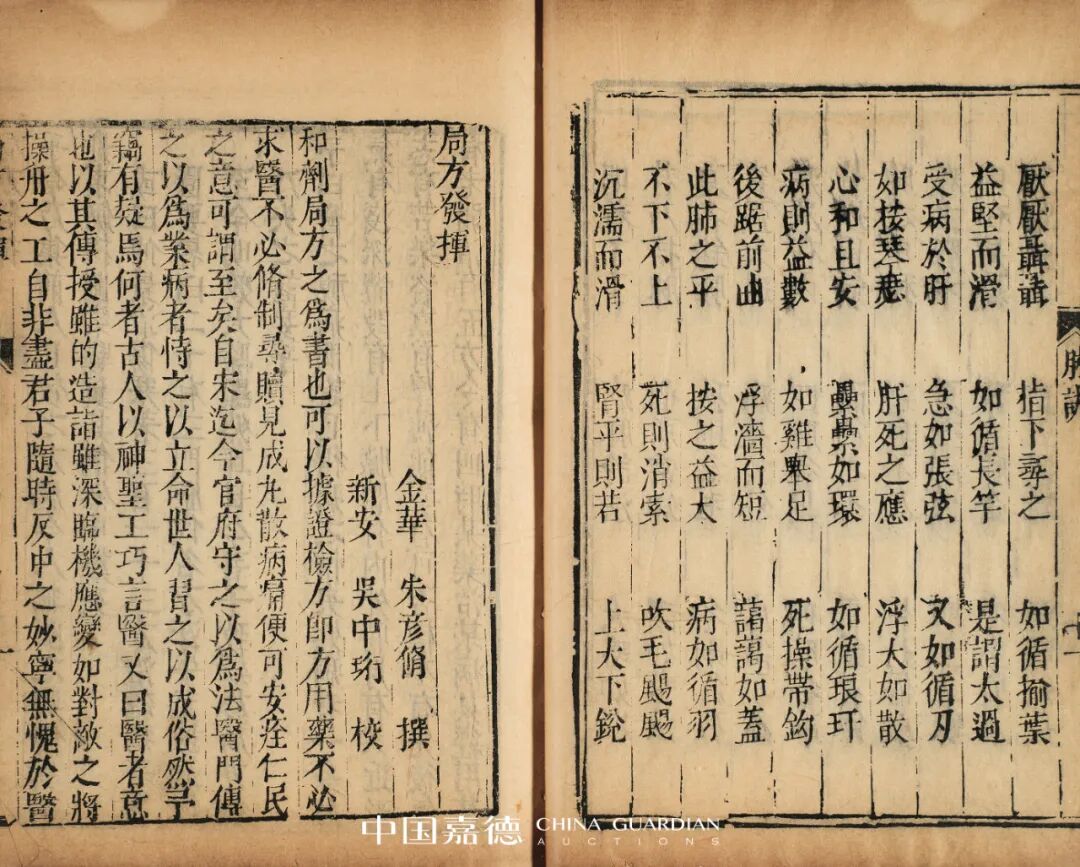 厭厭聶聶 指下尋之 如循揄葉
益堅而滑 如循長竿 是謂太過
受病於肝 急如張弦 又如循刃
如按琴瑟 肝死之應 浮大如散
心和且安 纍纍如環 如循琅玕
病則益數 如雞舉足 死操帶鈎
後踞前曲 浮濇而短 藹藹如蓋
此肺之平 按之益大 病如循羽
不下不上 死則消索 吹毛颸颸
沉濡而滑 腎平則若 上大下銳
局方發揮
金華 朱彥脩 撰
新安 吳中珩 校
和劑局方之爲書也可以據證檢方即方用藥不必
求醫不必脩制尋贖見成丸散病痛便可安痊仁民
之意可謂至矣自宋迄今官府守之以爲法醫門傳
之以爲業病者恃之以立命世人習之以成俗然予
竊有疑焉何者古人以神聖工巧言醫又曰醫者意
也以其傳授雖的造詣雖深臨機應變如對敵之將
操舟之工自非盡君子隨時反中之妙寧無愧於醫
中国嘉德 CHINA GUARDIAN
AUCTIONS